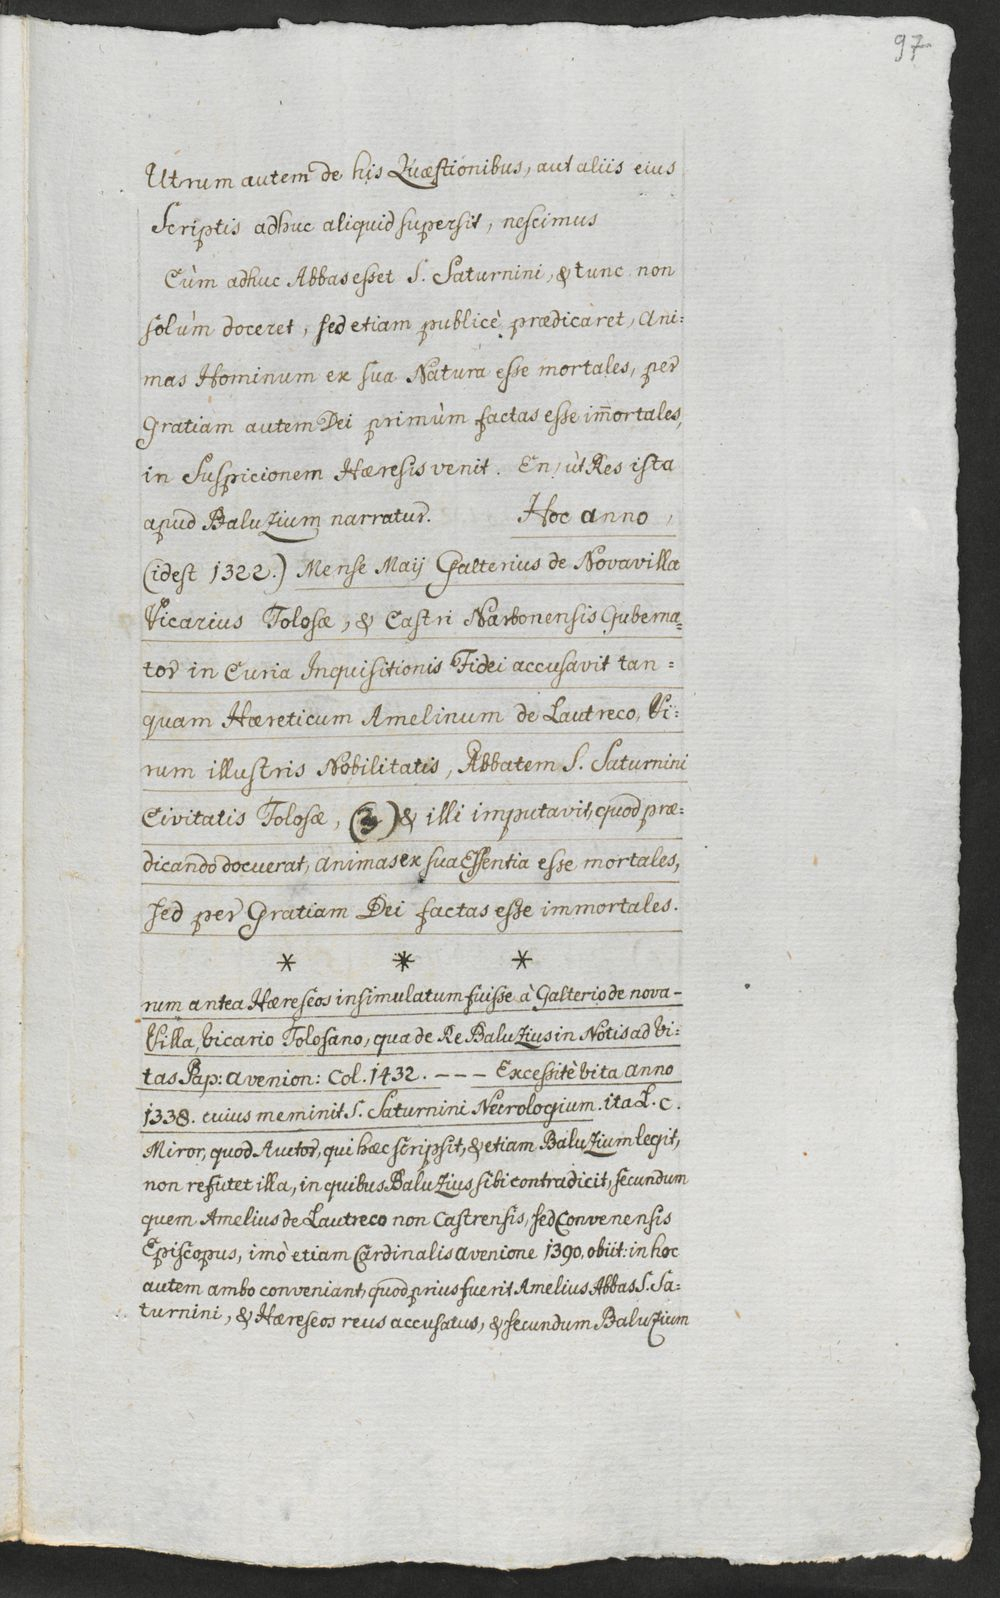 97
Utrum autem de his Quæstionibus, aut aliis eius
Scriptis adhuc aliquid supersit, nescimus
Cùm adhuc Abbas esset S. Saturnini, & tunc non
solùm doceret, sed etiam publicè prædicaret, Ani:
mas Hominum ex sua Natura esse mortales, per
Gratiam autem Dei primùm factas esse im̄ortales,
in Suspicionem Hæresis venit. En, ùt Res ista
apud Baluzium narratur. Hoc anno,
(idest 1322.) Mense Maij Galterius de Novavilla
Vicarius Tolosæ, & Castri Narbonensis Guberna=
tor in Curia Inquisitionis Fidei accusavit tan=
quam Hæreticum Amelinum de Lautreco, Vi:
rum illustris Nobilitatis, Abbatem S. Saturnini
Civitatis Tolosæ, (3) & illi imputavit, quod præ:
dicando docuerat, animas ex sua Essentia esse mortales,
sed per Gratiam Dei factas esse immortales.
* * *
rum antea Hæreseos insimulatum fuisse à Galterio de nova-
Villa, Vicario Tolosano, qua de Re Baluzius in Notis ad Vi:
tas Pap: avenion: Col. 1432. --- Excessit è vita anno
1338. cuius meminit S. Saturnini Necrologium. ita L. c.
Miror, quod Auctor, qui hæc scripsit, & etiam Baluzium legit,
non refutet illa, in quibus Baluzius sibi contradicit, secundum
quem Amelius de Lautreco non Castrensis, sed Convenensis
Episcopus, imò etiam Cardinalis avenione 1390. obiit: in hoc
autem ambo conveniant, quod prius fuerit Amelius Abbas S. Sa:
turnini, & Hæreseos reus accusatus, & secundum Baluzium